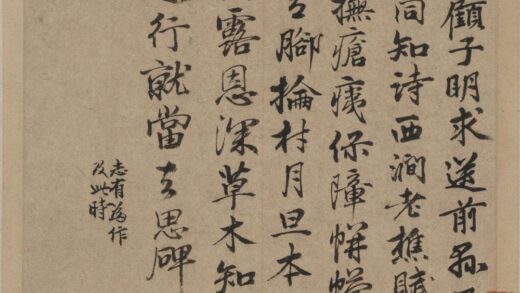 顧子明求送前
同知詩西澗老樵賦
撫瘡痍保障帡幪
腳掄材月旦本
露恩深草木知
行就當去思碑
志有為作
及此時